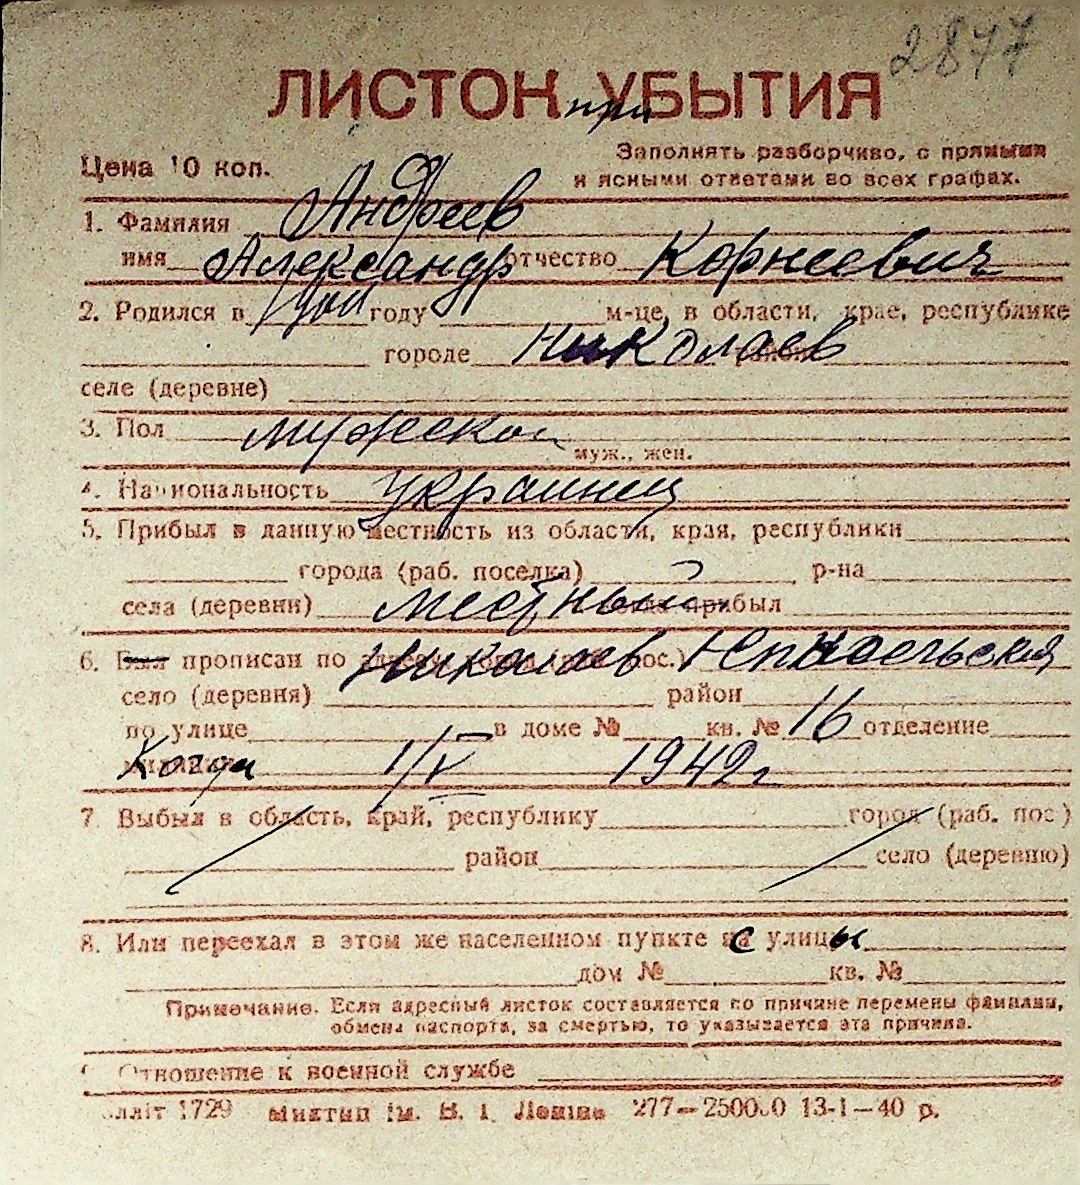 2877
ЛИСТОК при УБЫТИЯ
Цена 10 коп.
Заполнять разборчиво, с прямыми
и ясными ответами во всех графах.
1. Фамилия Андреев
имя Александр отчество Корнеевич
2. Родился в году м-це, в области, крае, республике
городе Николаев
селе (деревне)
3. Пол мужской
муж., жен.
4. Национальность украинец
5. Прибыл в данную местность из области, края, республики
города (раб. поселка) р-на
села (деревни) местный прибыл
6. Был прописан по Николаев
село (деревня) район
по улице в доме № кв. № 16 отделение
Когда 1/V 1942 г
7. Выбыл в область, край, республику город (раб. пос)
район село (деревню)
8. Или переехал в этом же населенном пункте с улицы
дом № кв. №
Примечание. Если адресный листок составляется по причине перемены фамилии,
обмена паспорта, за смертью, то указывается эта причина.
Отношение к военной службе
1729 им. В. І. Леніна 277—250000 13-1—40 р.